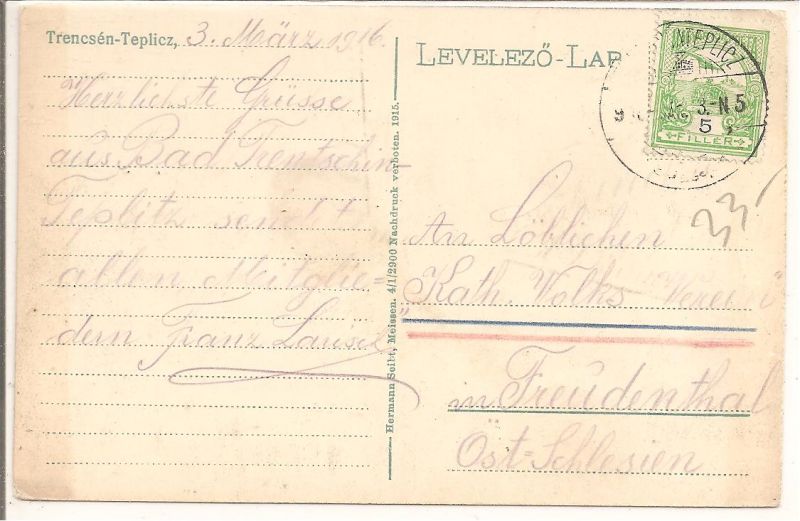 Trencsén-Teplicz, 3. März 1916.
Herzlichste Grüsse
aus Bad Trentschin-
Teplitz sendet
allen Mitglie=
dern Franz
Hermann Seibt, Meissen. 4/1/2900 Nachdruck verboten. 1915.
LEVELEZŐ-LAP
NTEPLICZ
3-N5
5
FILLÉR
33
An Löblichen
"Kath. Volks Verein"
in Freudenthal
Öst-Schlesien